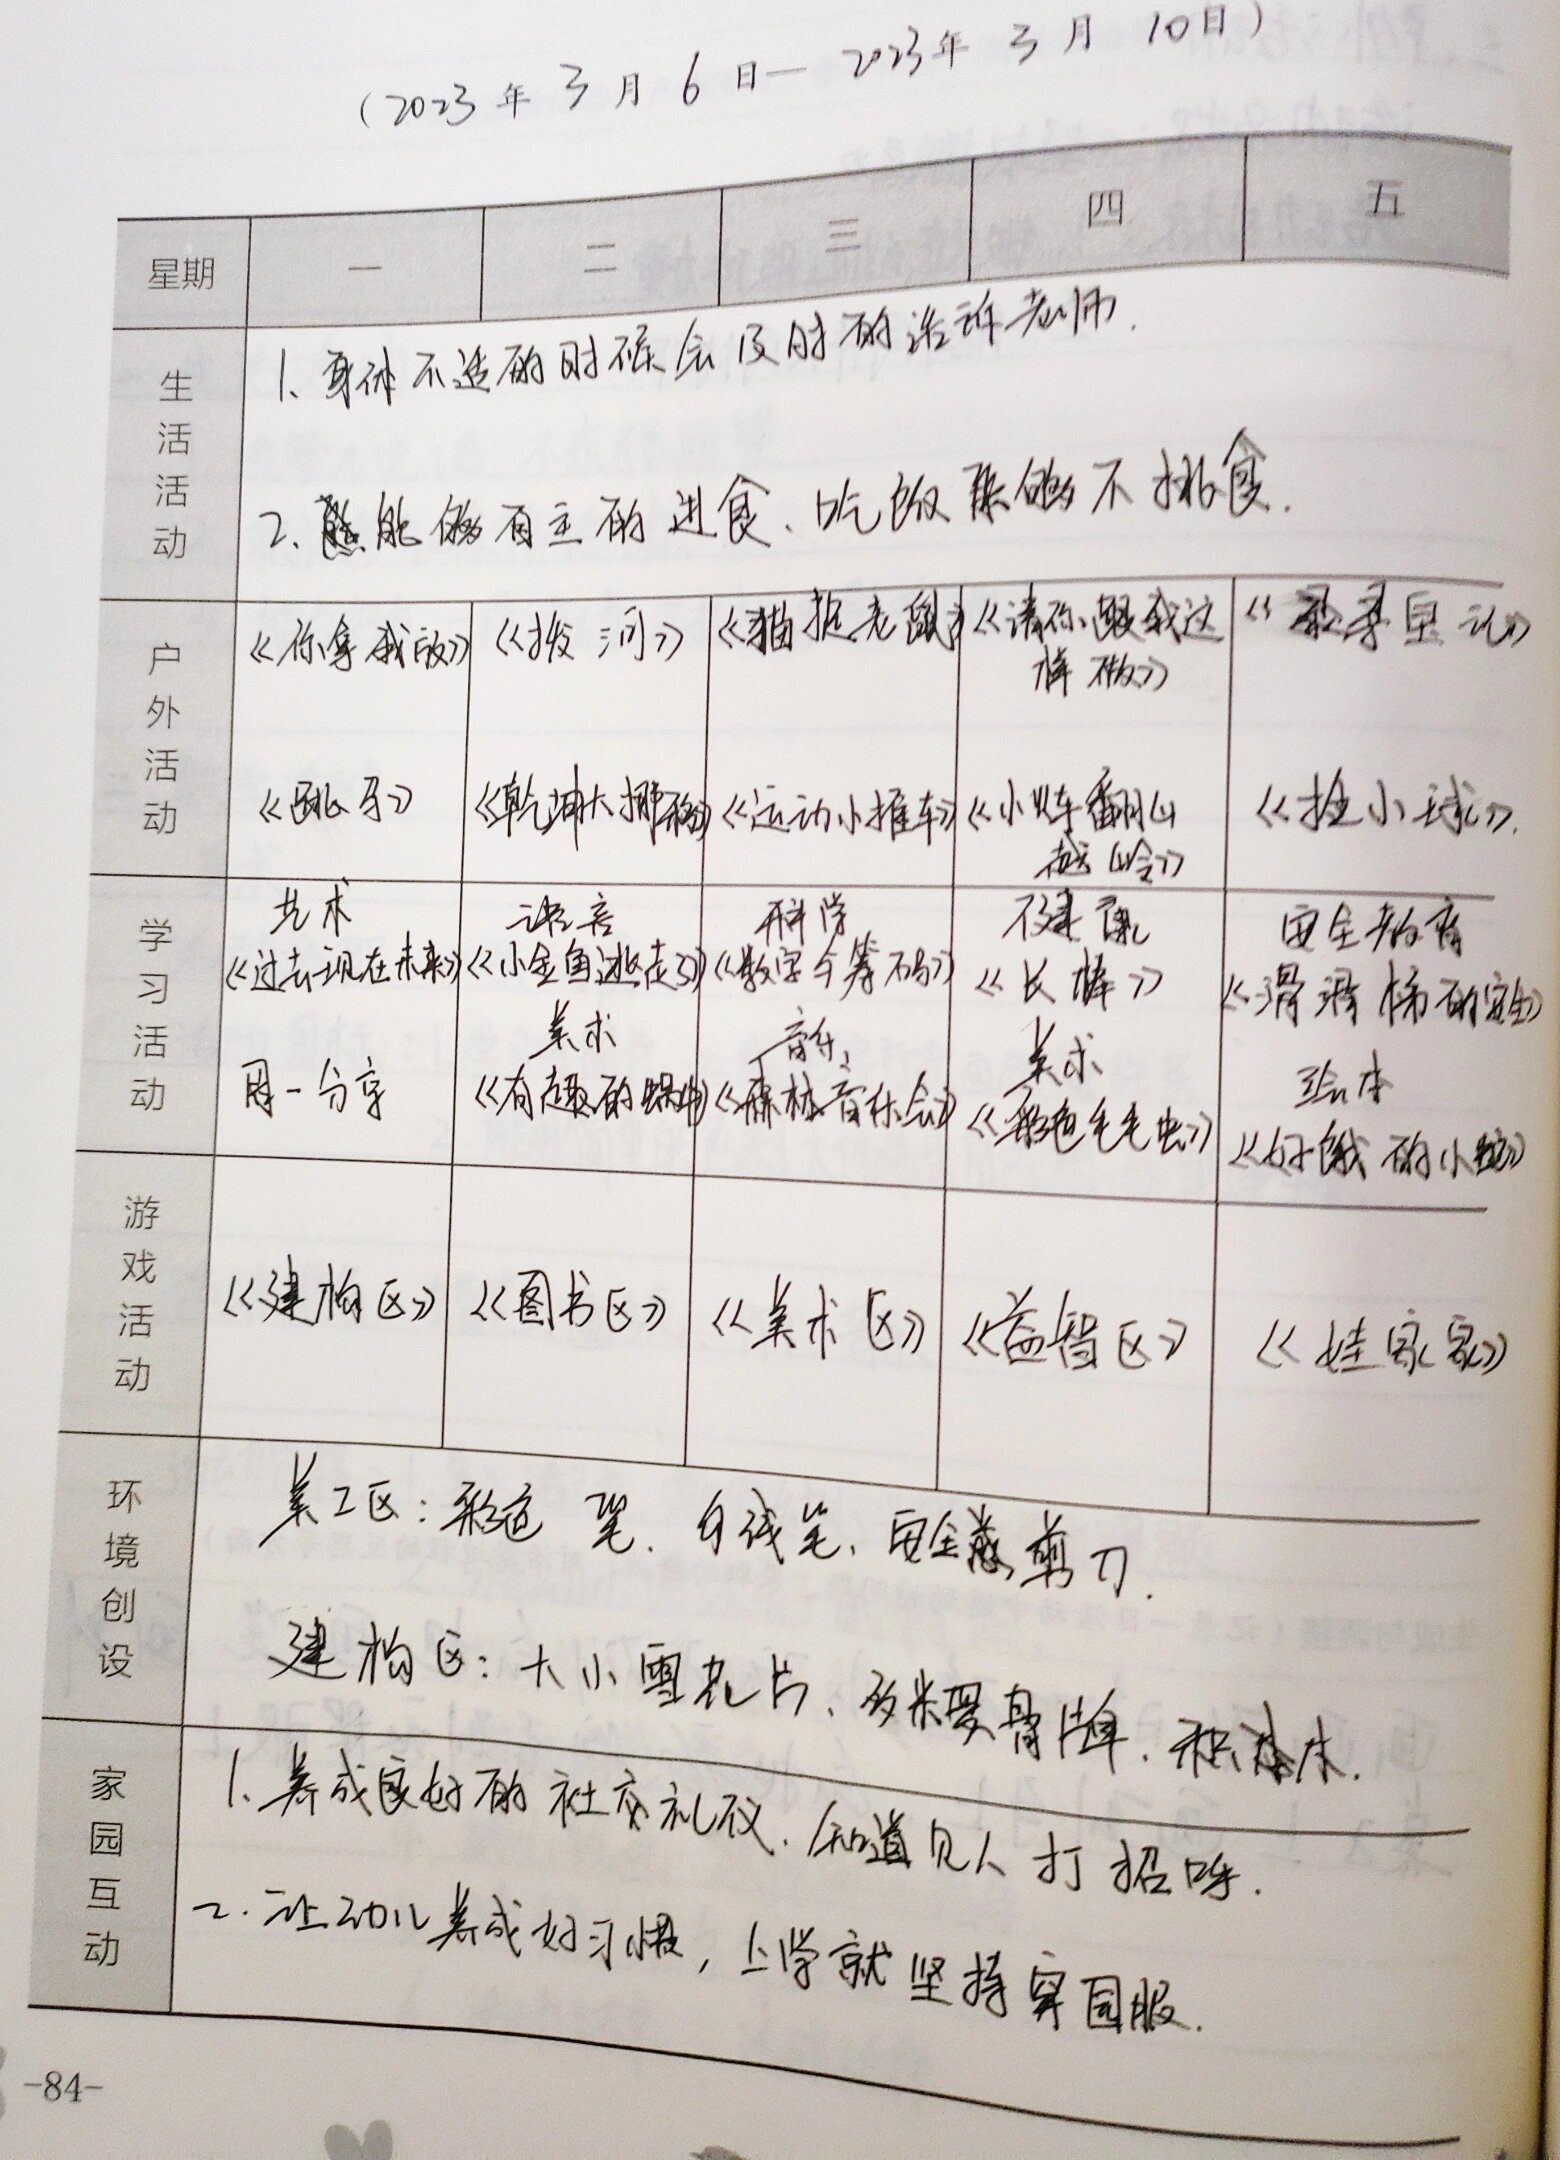 (2023年3月6日—2023年3月10日)
星期 一 二 三 四 五
生活活动
1、身体不适的时候会及时的告诉老师.
2、能够自主的进食、吃饭能够不挑食.
户外活动
《你拿我放》 《拔河》 《猫抓老鼠》 《请你跟我这
样做》
《跳牙》 《乾坤大挪移》 《运动小推车》 《小火车翻山
越岭》 《拴小球》.
学习活动
艺术 语言 科学 健康 安全教育
《过去现在未来》 《小金鱼逃走了》 《数字分筹码》 《长棒》 《滑滑梯的安全》
美术 音乐 美术 绘本
周一分享 《有趣的蜗牛》 《森林音乐会》 《彩色毛毛虫》 《好饿的小蛇》
游戏活动
《建构区》 《图书区》 《美术区》 《益智区》 《娃家家》
环境创设
美工区：彩色笔、勾线笔、安全剪刀.
建构区：大小雪花片、多米罗骨牌、积木.
家园互动
1、养成良好的社交礼仪、知道见人打招呼.
2.让幼儿养成好习惯，上学就坚持穿园服.
-84-